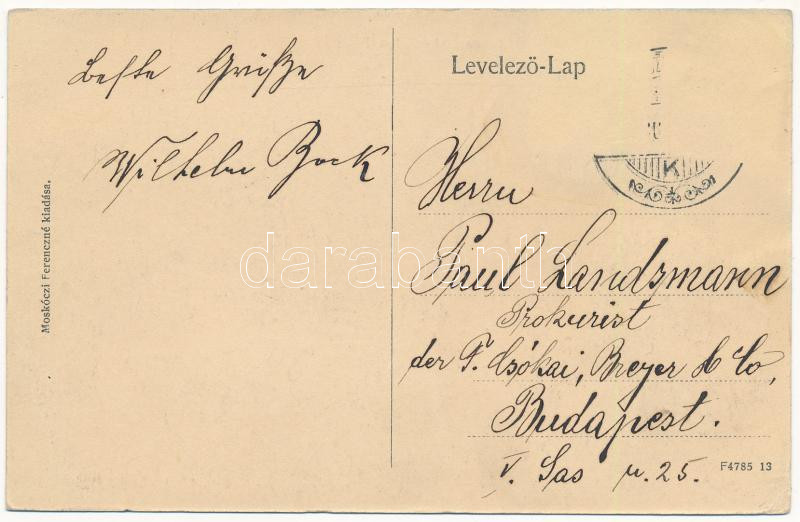 Beste Grüße
Wilhelm Bock
Moskóczi Ferenczné kiadása.
Levelező-Lap
K
Herrn
Paul Landzmann
Prokurist
der F. Csókai, Breyer & Co,
Budapest.
V. Sas u. 25.
F4785 13
darabanth